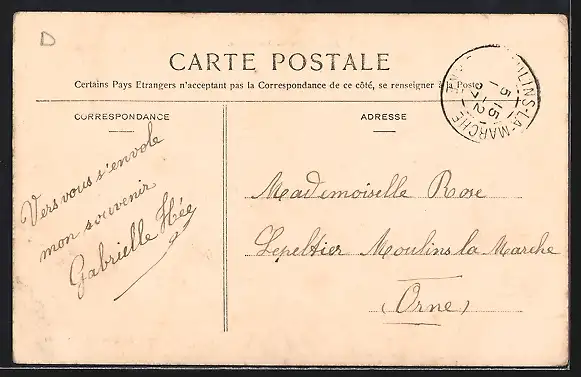 D
CARTE POSTALE
Certains Pays Etrangers n'acceptant pas la Correspondance de ce côté, se renseigner à la Poste
CORRESPONDANCE
ADRESSE
MOULINS-LA-MARCHE
Vers vous s'envole
mon souvenir
Gabrielle Hée
Mademoiselle Rose
Lepeltier Moulins la Marche
(Orne)